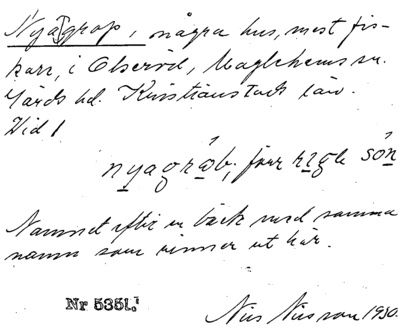 Nyagrop, några hus, mest fis-
kare, i Olseröd, Maglehems sn.
Gärds hd. Kristianstads län.
Vid
nyagrab,
Namnet efter en bäck med samma
namn som rinner ut här.
Nr 5351.
Nils Nilsson 1930.